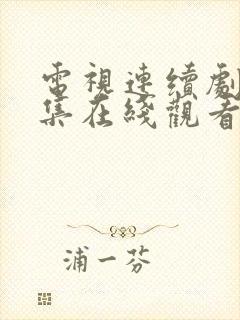 電視連續劇
集在綫觀看
浦一芬